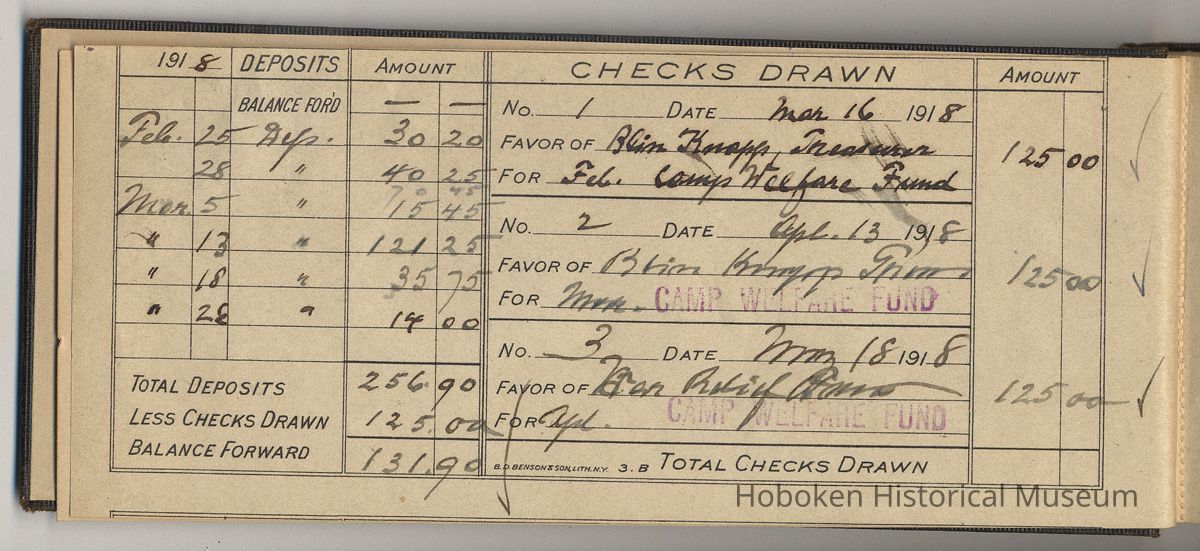 1918 DEPOSITS AMOUNT
BALANCE FOR'D — —
Feb. 25 Dep. 30 20
28 " 40 25
70 45
Mar. 5 " 15 45
" 13 " 121 25
" 18 " 35 75
" 28 " 14 00
TOTAL DEPOSITS 256.90
LESS CHECKS DRAWN 125.00
BALANCE FORWARD 131.90
CHECKS DRAWN AMOUNT
No. 1 DATE Mar 16 1918
FAVOR OF Blin Knapp, Treasurer 125 00
FOR Feb. Camp Welfare Fund
No. 2 DATE Apl. 13 1918
FAVOR OF Blin Knapp Treas 125 00
FOR Mar. CAMP WELFARE FUND
No. 3 DATE May 18 1918
FAVOR OF War Relief 125 00
FOR Apl. CAMP WELFARE FUND
B.D. BENSON & SON, LITH. N.Y. 3. B TOTAL CHECKS DRAWN
Hoboken Historical Museum